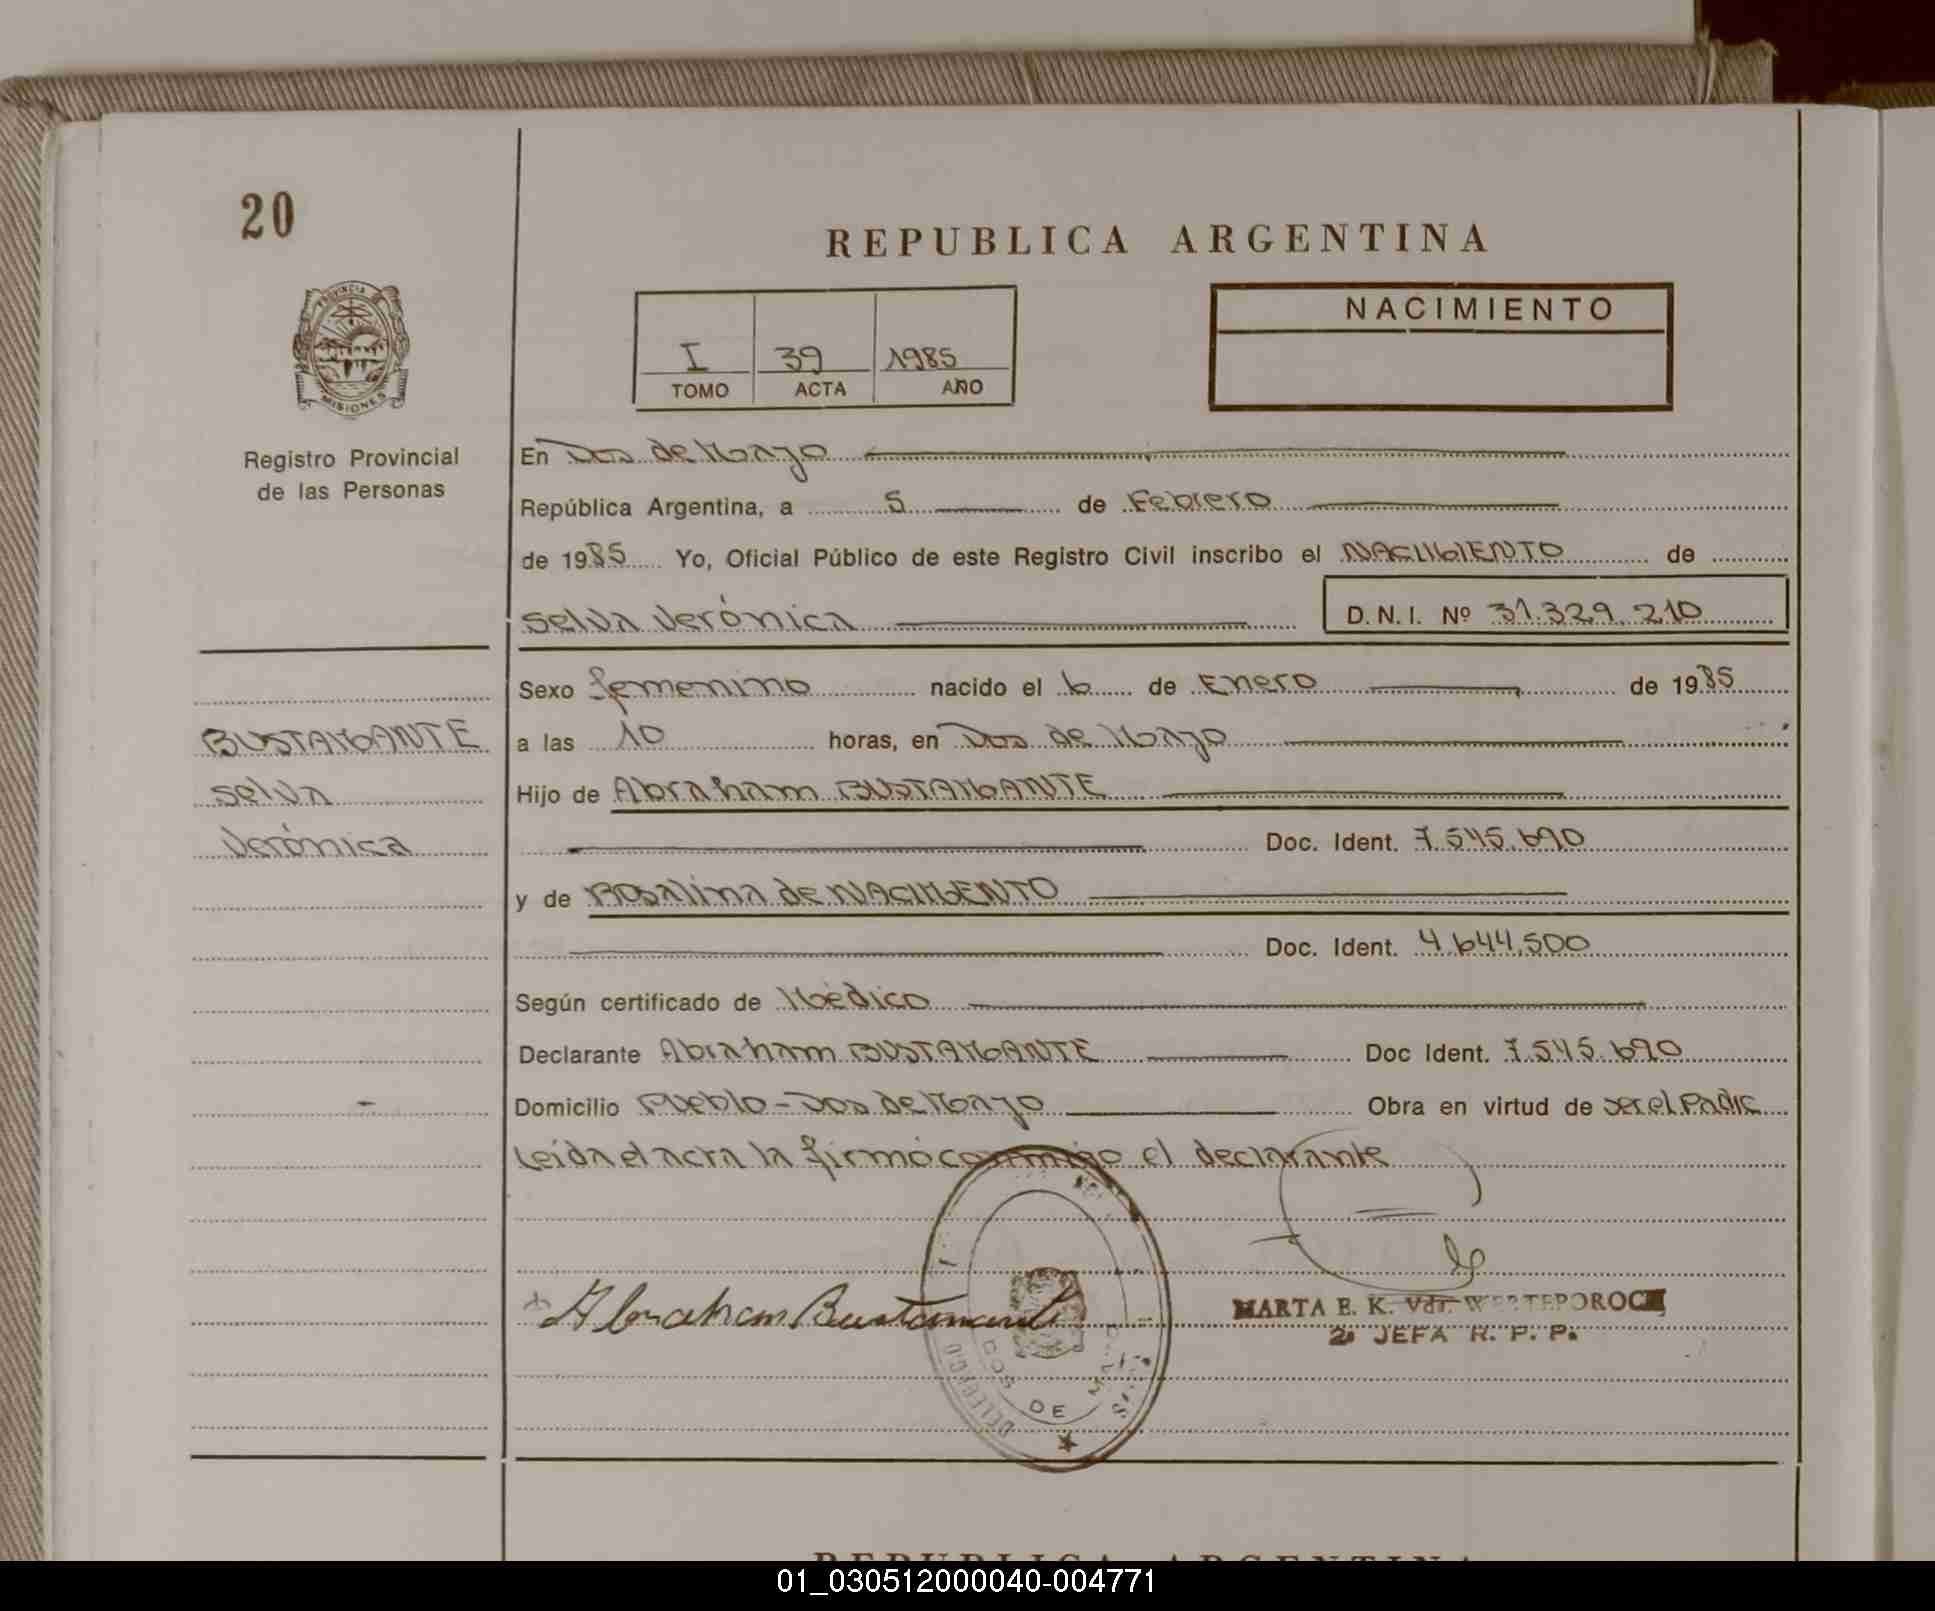 20
REPUBLICA ARGENTINA
PROVINCIA
MISIONES
Registro Provincial
de las Personas
I 39 1985
TOMO ACTA AÑO
NACIMIENTO
En Dos de Mayo
República Argentina, a 5 de Febrero
de 1985 Yo, Oficial Público de este Registro Civil inscribo el NACIMIENTO de
Selva Verónica D.N.I. Nº 31.329.210
Sexo femenino nacido el 6 de Enero de 1985
BUSTAMANTE
Selva
Verónica
a las 10 horas, en Dos de Mayo
Hijo de Abraham BUSTAMANTE
Doc. Ident. 7.545.690
y de Rosalina de NACIMENTO
Doc. Ident. 4.644.500
Según certificado de Médico
Declarante Abraham BUSTAMANTE Doc Ident. 7.545.690
Domicilio Pueblo - Dos de Mayo Obra en virtud de ser el Padre
Leída el acta la firmó conmigo el declarante
Abraham Bustamante
MARTA E. K. Vdr.
2a JEFA R. P. P.
DOS DE MAYO
01_030512000040-004771